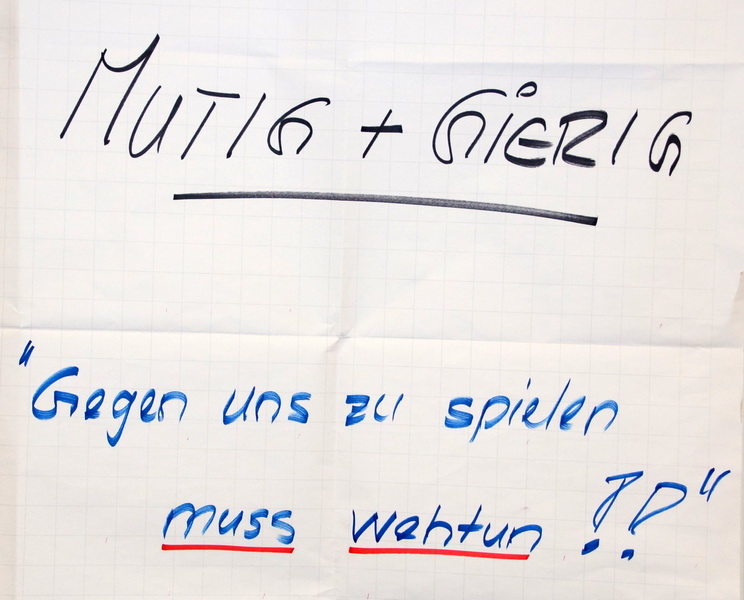 MUTIG + GIERIG
"Gegen uns zu spielen
muss wehtun !!"